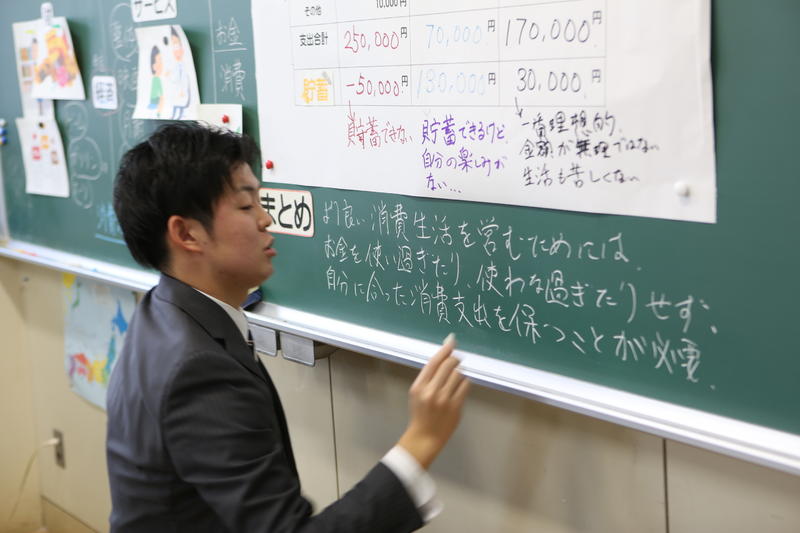 サービス
お金
消費
その他 10,000円
支出合計 250,000円 70,000円 170,000円
貯蓄 -50,000円 130,000円 30,000円
貯蓄できない
貯蓄できるけど、
自分の楽しみが
ない…
一番理想的
金額が無理ではない
生活も苦しくない
まとめ
より良い消費生活を営むためには、
お金を使い過ぎたり、使わな過ぎたりせず、
自分に合った消費支出を保つことが必要。